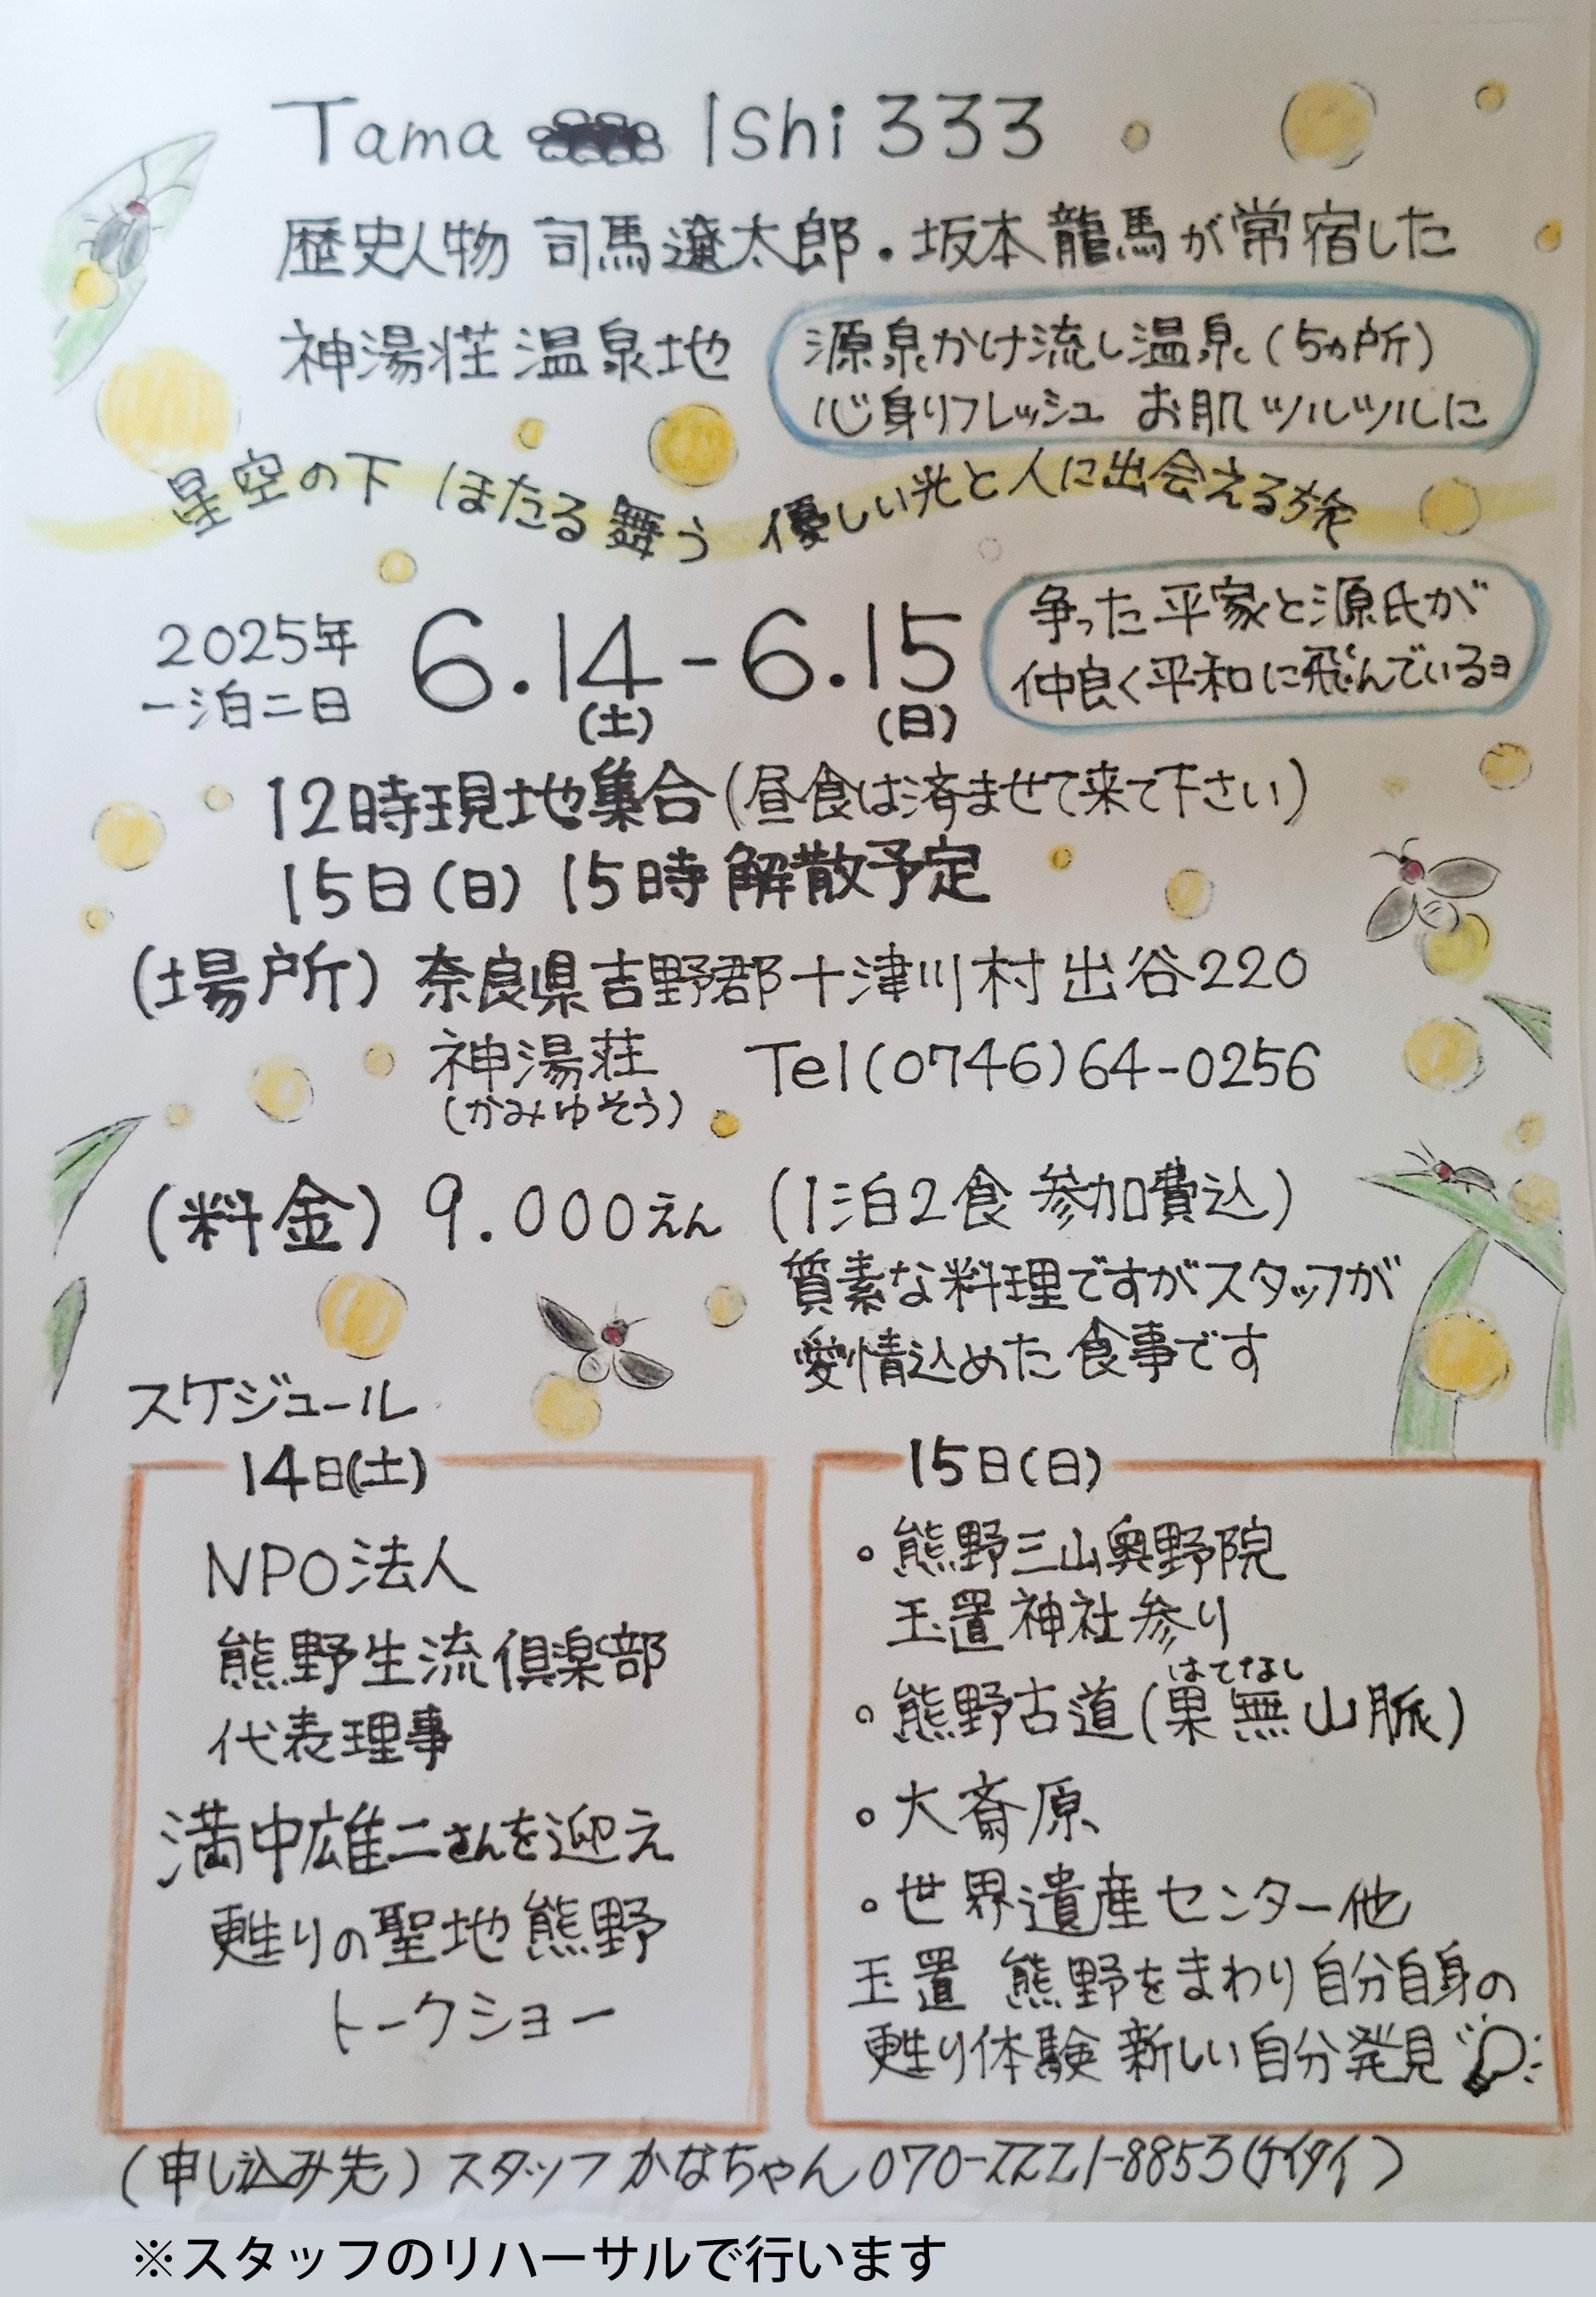 Tama Ishi 333
歴史人物 司馬遼太郎・坂本龍馬が常宿した
神湯荘温泉地
源泉かけ流し温泉(5ヵ所)
心身リフレッシュ お肌ツルツルに
星空の下 ほたる舞う 優しい光と人に出会える旅
2025年
一泊二日
6.14-6.15
(土)
(日)
争った平家と源氏が
仲良く平和に飛んでいるヨ
12時現地集合(昼食は済ませて来て下さい)
15日(日) 15時解散予定
(場所) 奈良県吉野郡十津川村出谷220
神湯荘 Tel(0746)64-0256
(かみゆそう)
(料金) 9.000えん (1泊2食 参加費込)
質素な料理ですがスタッフが
愛情込めた食事です
スケジュール
14日(土)
NPO法人
熊野生流倶楽部
代表理事
満中雄二さんを迎え
甦りの聖地熊野
トークショー
15日(日)
・熊野三山奥野院
玉置神社参り
はてなし
・熊野古道(果無山脈)
・大斎原
・世界遺産センター他
玉置 熊野をまわり自分自身の
甦り体験 新しい自分発見
(申し込み先) スタッフ かなちゃん 070-2221-8853(ケイタイ)
※スタッフのリハーサルで行います